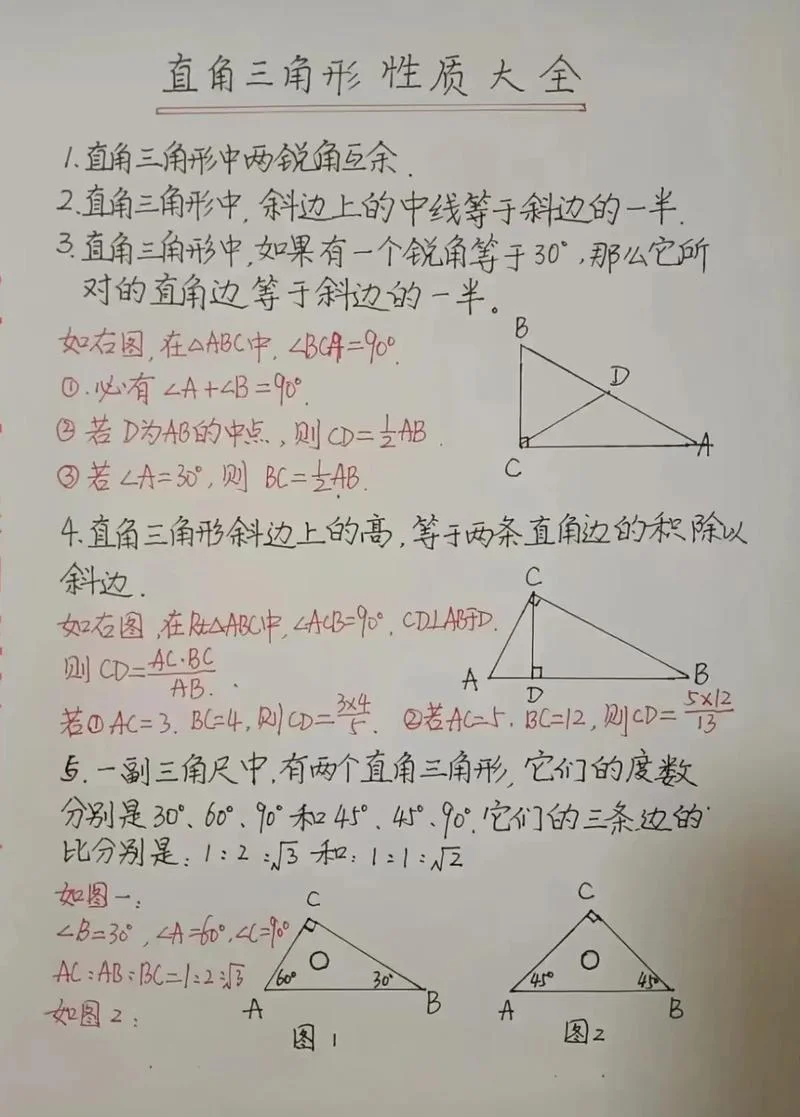 直角三角形性质大全
1.直角三角形中两锐角互余.
2.直角三角形中,斜边上的中线等于斜边的一半.
3.直角三角形中,如果有一个锐角等于30°,那么它所
对的直角边等于斜边的一半。
如右图,在△ABC中,∠BCA=90°.
①.必有∠A+∠B=90°.
②若D为AB的中点,则CD=½AB.
③若∠A=30°,则BC=½AB.
B
D
C
A
4.直角三角形斜边上的高,等于两条直角边的积除以
斜边.
如右图,在Rt△ABC中,∠ACB=90°.CD⊥AB于D.
则CD=AC·BC/AB.
C
A
D
B
若①AC=3.BC=4,则CD=3×4/5. ②若AC=5.BC=12,则CD=5×12/13
5.一副三角尺中,有两个直角三角形,它们的度数
分别是30°、60°、90°和45°、45°、90°.它们的三条边的
比分别是:1:2:√3和:1:1:√2
如图一:
∠B=30°,∠A=60°,∠C=90°
AC:AB:BC=1:2:√3
如图2:
C
60°
30°
A
B
图1
C
45°
45°
A
B
图2